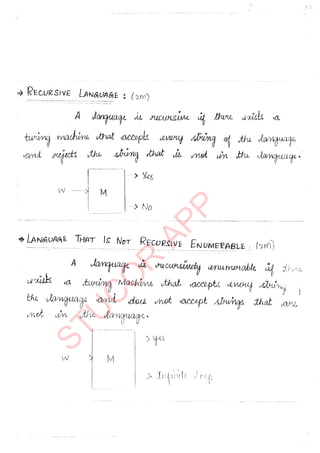 → RECURSIVE LANGUAGE : (2m)
A language is recursive if there exists a
turing machine that accepts every string of the language
and rejects the string that is not in the language.
→ Yes
W → M
→ No
→ LANGUAGE THAT IS NOT RECURSIVE ENUMERABLE : (2m)
A language is recursively enumerable if there
exists a turing Machine that accepts every string
the language and does not accept strings that are
not in the language.
> yes
W > M
> Infinite loop
STUCOR APP